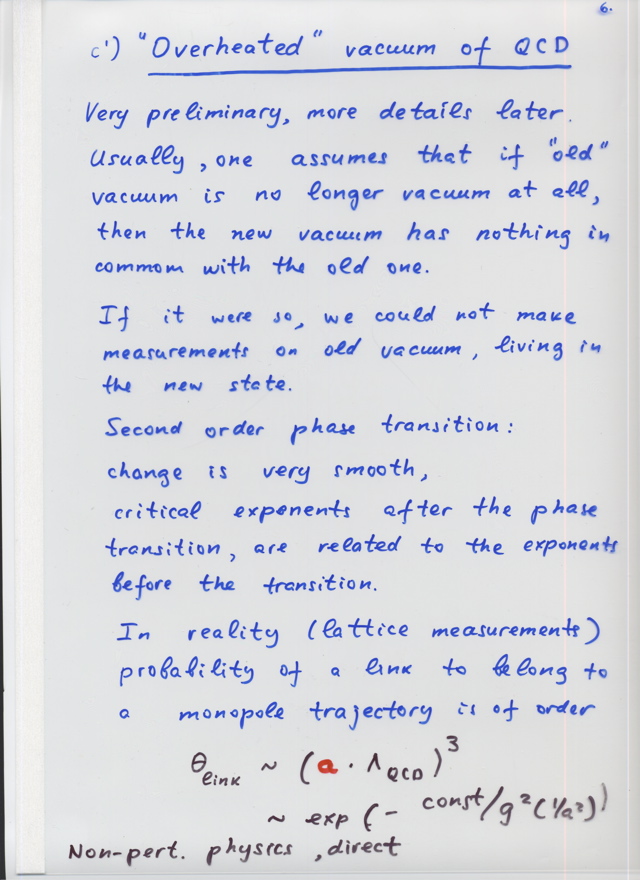 6.
c') "Overheated" vacuum of QCD
Very preliminary, more details later.
Usually, one assumes that if "old"
vacuum is no longer vacuum at all,
then the new vacuum has nothing in
commom with the old one.
If it were so, we could not make
measurements on old vacuum, living in
the new state.
Second order phase transition:
change is very smooth,
critical exponents after the phase
transition, are related to the exponents
before the transition.
In reality (lattice measurements)
probability of a link to belong to
a monopole trajectory is of order
θ_link ~ (a · Λ_QCD)^3
~ exp (- const/g²(1/a²))
Non-pert. physics, direct